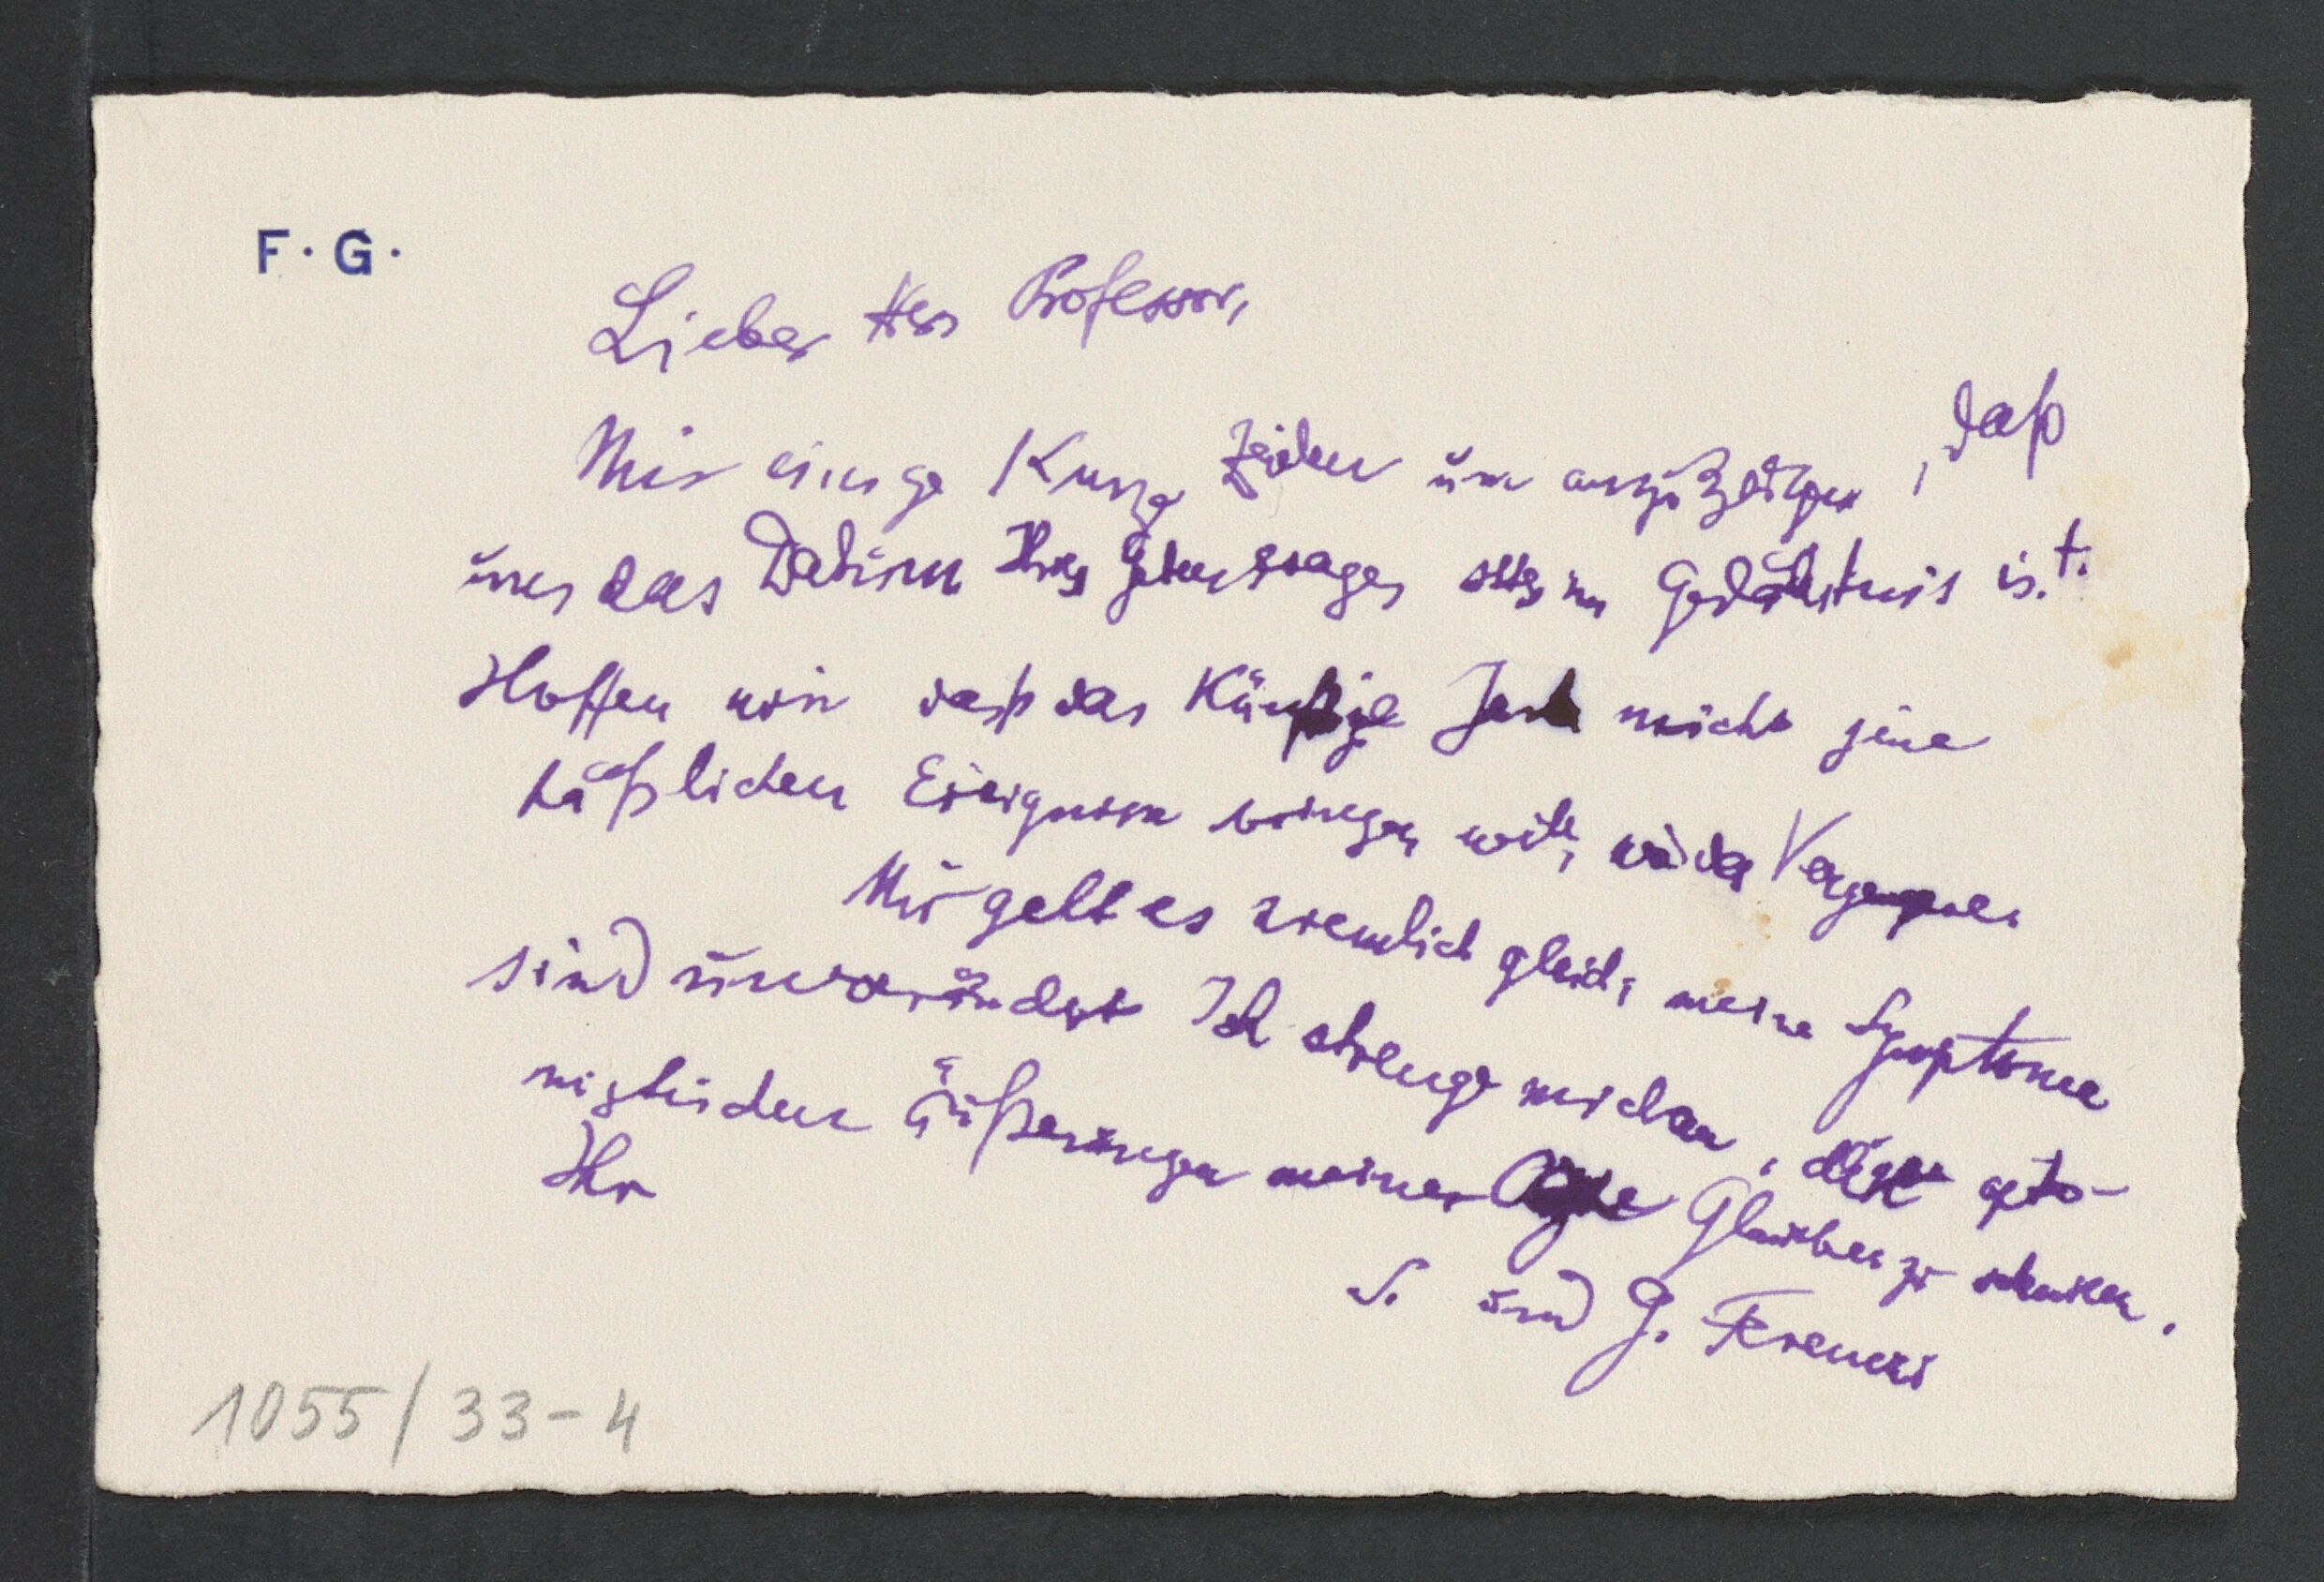 F. G.
Lieber Herr Professor,
Nur einige kurze Zeilen um anzuzeigen, daß
uns das Datum Ihres Geburtstages stets im Gedächtnis ist.
Hoffen wir daß das Künftige Jahr nicht jene
häßlichen Ereignisse bringen will, wie das Vergangene.
Mir geht es ziemlich gleich; meine Symptome
sind unverändert Ich strenge mich an, den opti-
mistischen Äußerungen meiner Glauben zu schenken.
Ihr
S. und G. Ferenczi
1055/33-4